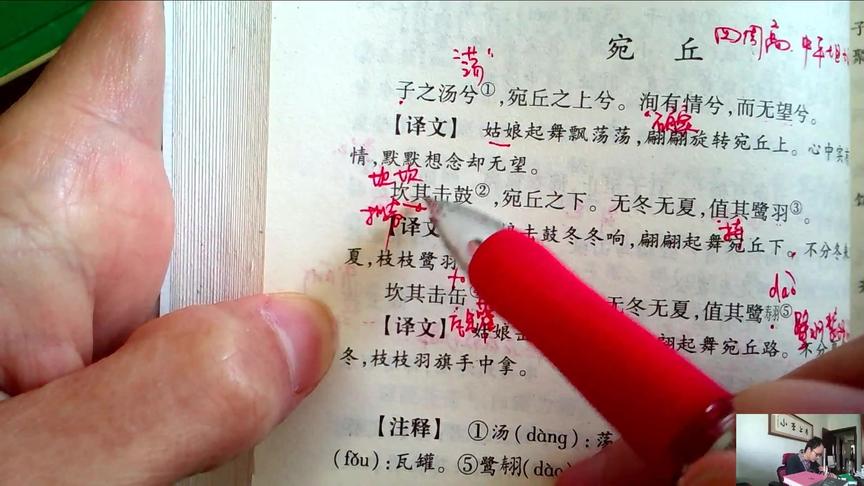 宛丘 四周高
“荡”
子之汤兮①,宛丘之上兮。洵有情兮,而无望兮。
确实
【译文】 姑娘起舞飘荡荡,翩翩旋转宛丘上。心中实有
情,默默想念却无望。
坎坎
坎其击鼓②,宛丘之下。无冬无夏,值其鹭羽③。
持
【译文 娘击鼓冬冬响,翩翩起舞宛丘下。不分冬
夏,枝枝鹭羽
dào
坎其击缶 无冬无夏,值其鹭翿⑤
【译文】 姑娘 起舞宛丘路。不分
冬,枝枝羽旗手中拿。
【注释】 ①汤(dàng):荡
(fǒu):瓦罐。⑤鹭翿(dào